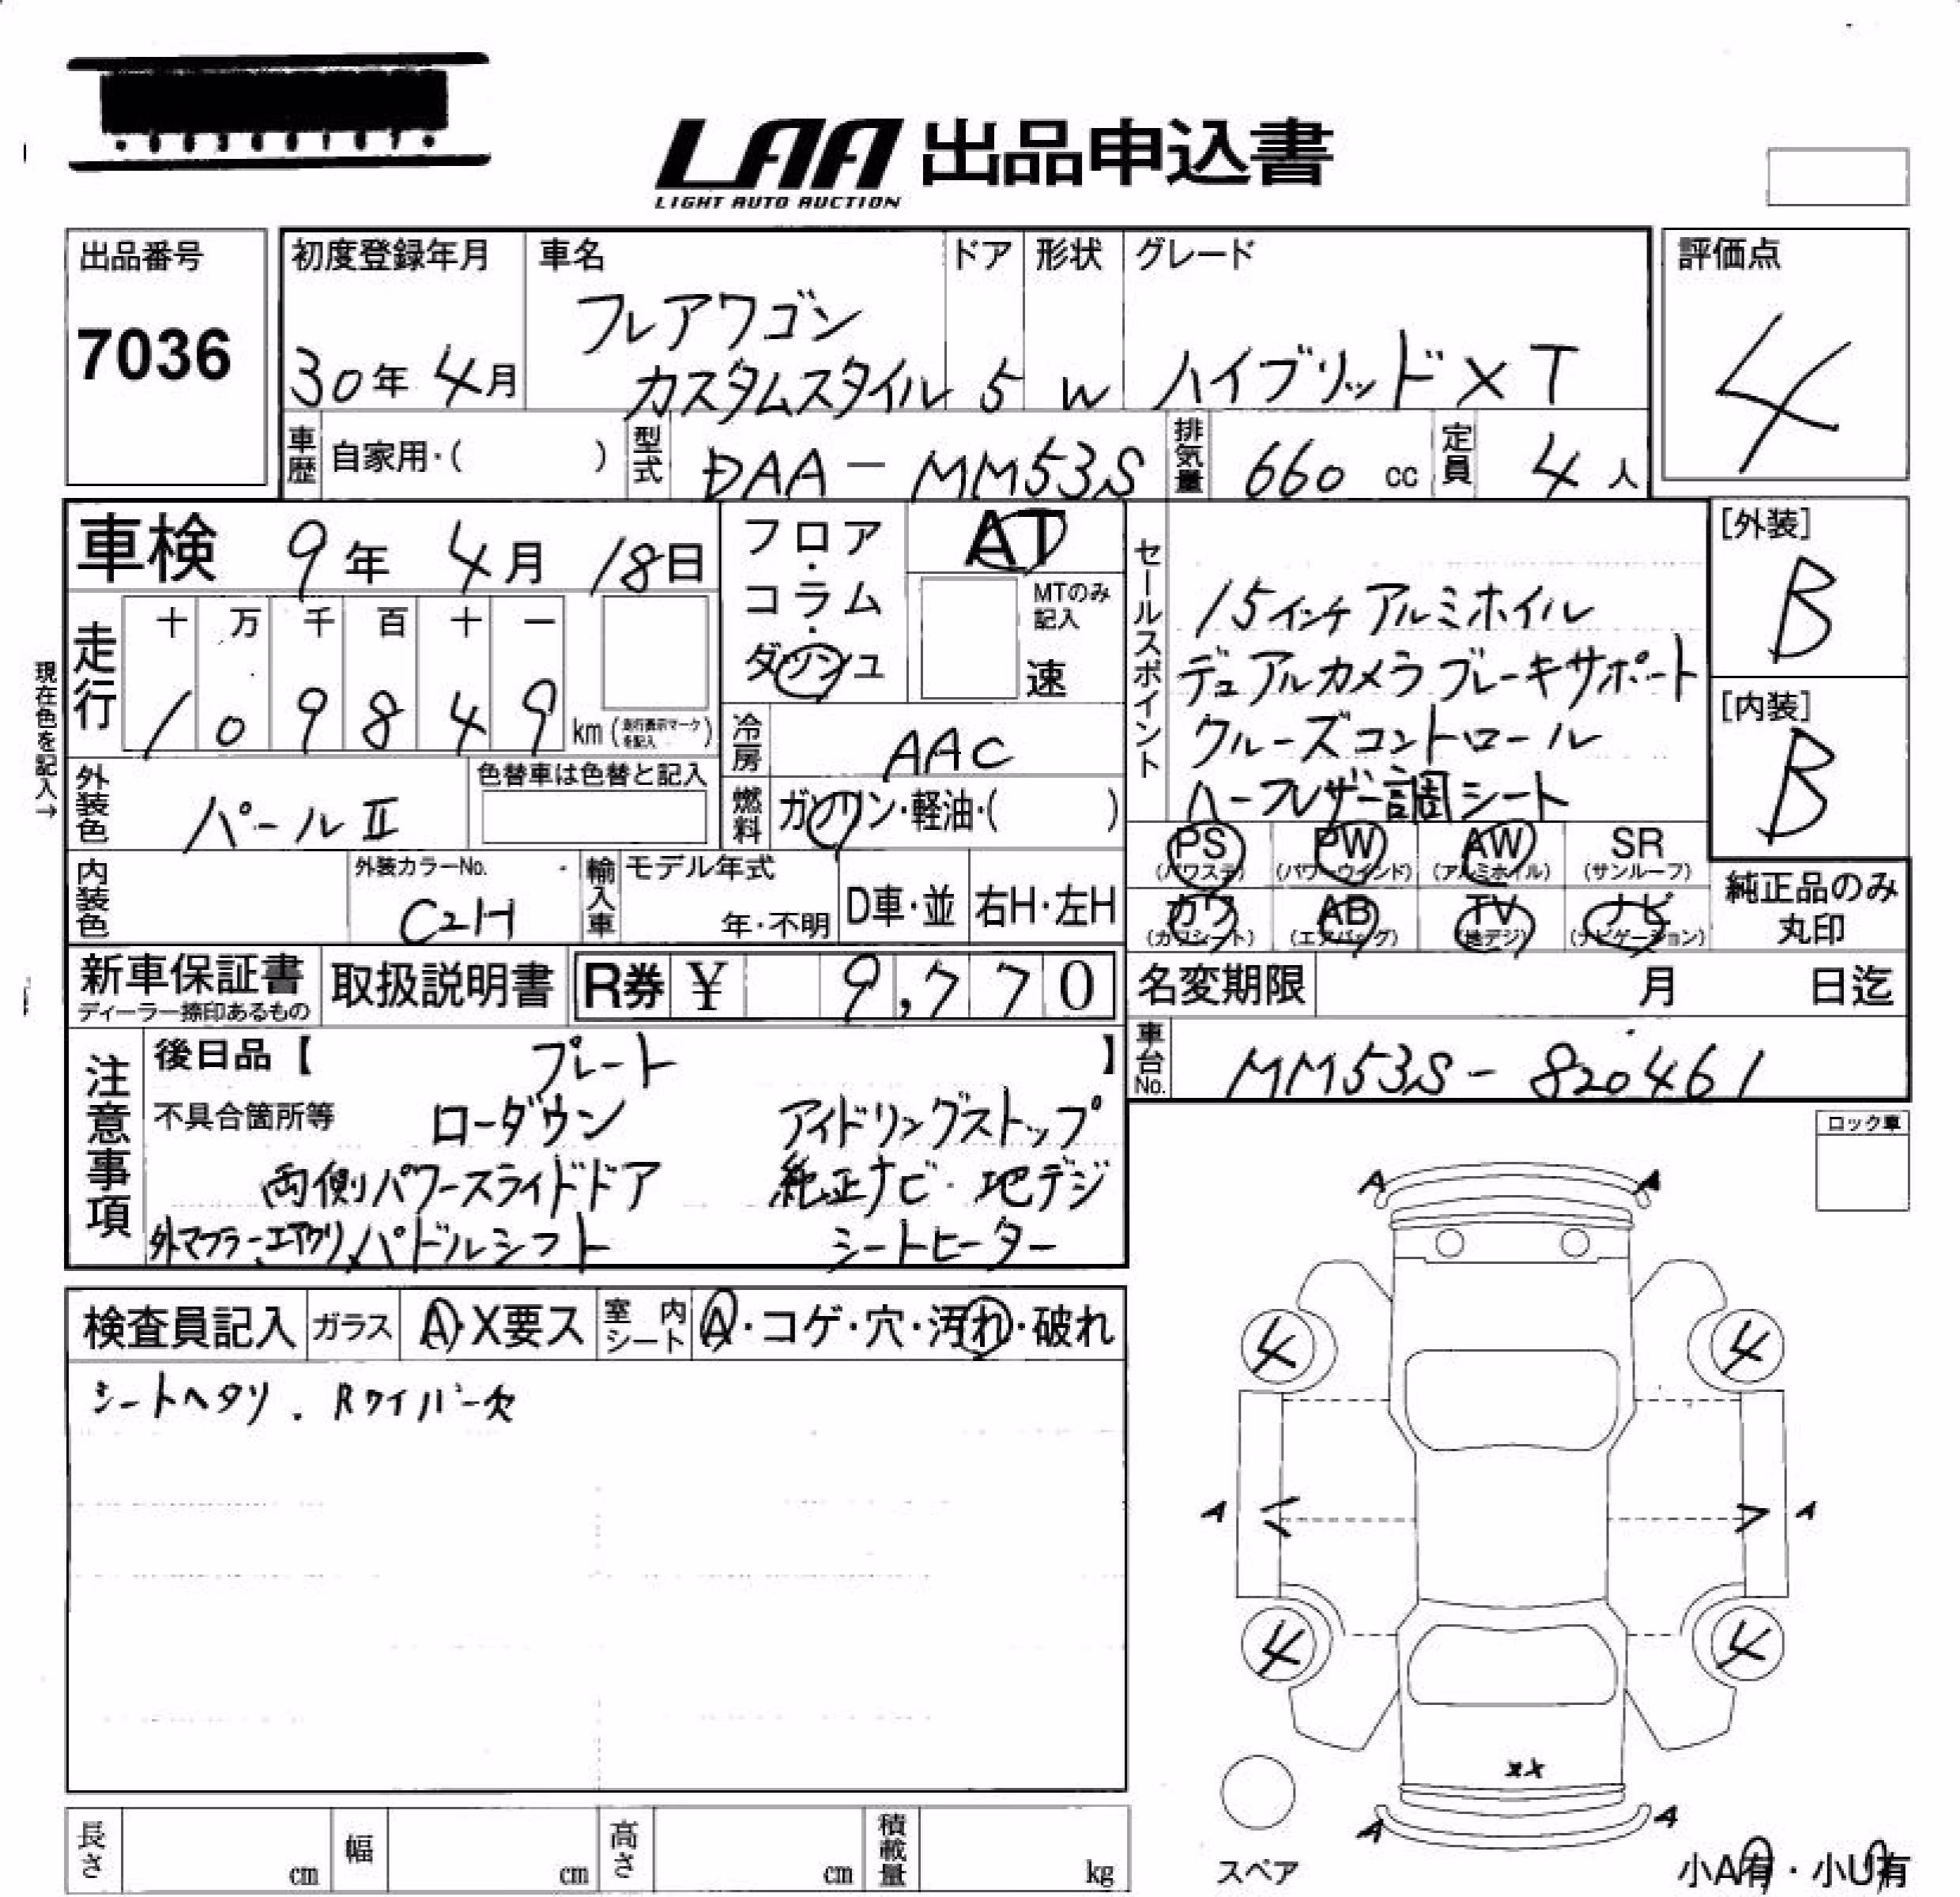 LAA 出品申込書
LIGHT AUTO AUCTION
出品番号
7036
初度登録年月 車名 ドア 形状 グレード
フレアワゴン
30年 4月 カスタムスタイル 5 W ハイブリッドXT
評価点
4
車歴 自家用・( ) 型式 DAA-MM53S 排気量 660 cc 定員 4 人
車検 9年 4月 18日
フロア・コラム・ダッシュ
AT
MTのみ記入
速
走行 十 万 千 百 十 一
1 0 9 8 4 9 km (走行表示マークを記入)
現在色を記入→
冷房 AAC
外装色 パールⅡ 色替車は色替と記入
燃料 ガソリン・軽油・( )
セールスポイント
15インチアルミホイル
デュアルカメラブレーキサポート
クルーズコントロール
ハーフレザー調シート
[外装]
B
[内装]
B
PS (パワステ) PW (パワーウインド) AW (アルミホイル) SR (サンルーフ)
カワ (カワシート) AB (エアバッグ) TV (地デジ) ナビ (ナビゲーション)
純正品のみ
丸印
内装色 外装カラーNo. C2H 輸入車 モデル年式 年・不明 D車・並 右H・左H
新車保証書 取扱説明書 R券 ¥ 9,770
ディーラー捺印あるもの
名変期限 月 日迄
車台No. MM53S-820461
注意事項
後日品【 プレート 】
不具合箇所等 ローダウン アイドリングストップ
両側パワースライドドア 純正ナビ・地デジ
外マフラー、エアクリ、パドルシフト シートヒーター
ロック車
検査員記入 ガラス A・X要ス 室内シート A・コゲ・穴・汚れ・破れ
シートヘタリ. Rワイパー欠
A A
4 4
A A
4 4
XX
A A
スペア
小A有・小U有
長さ cm 幅 cm 高さ cm 積載量 kg